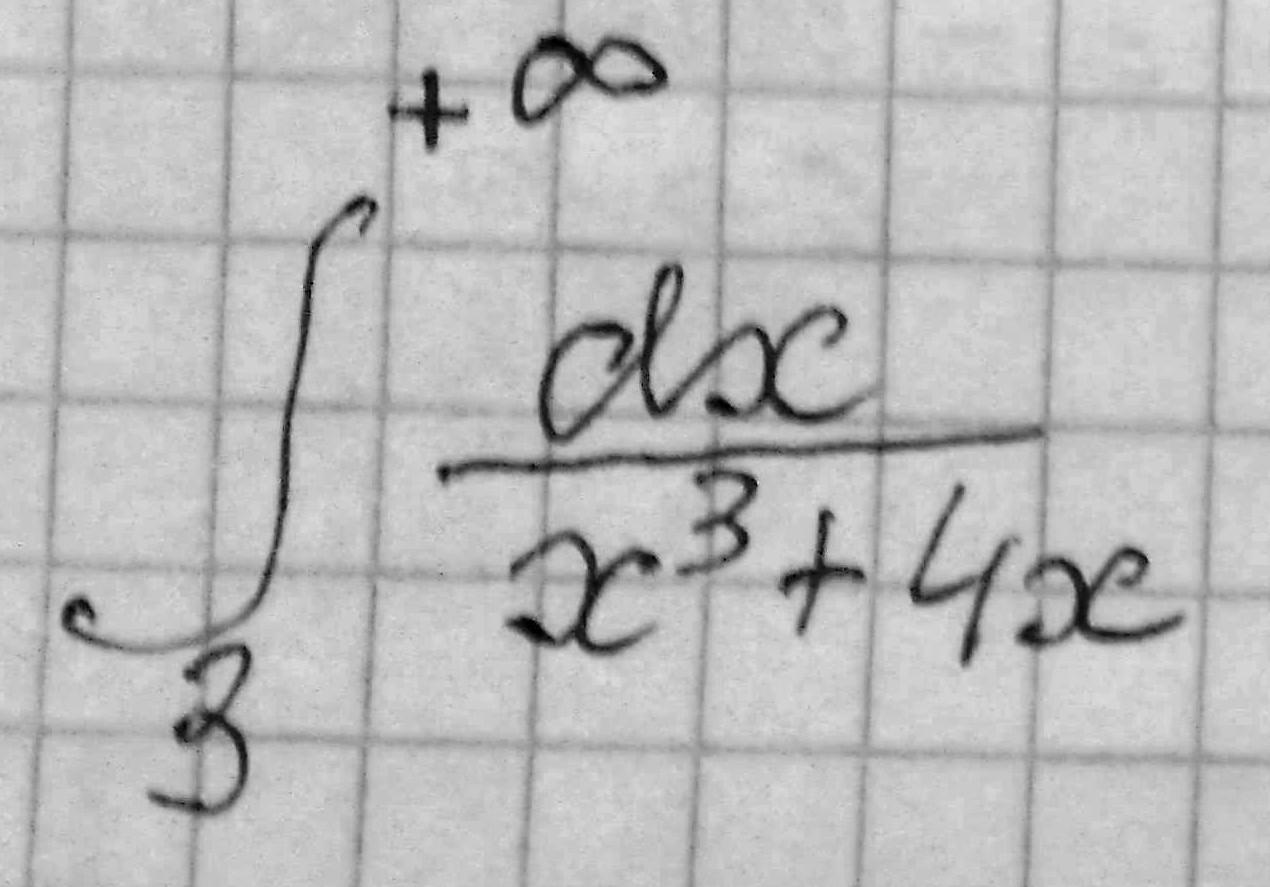 $\int_{3}^{+\infty} \frac{dx}{x^3+4x}$